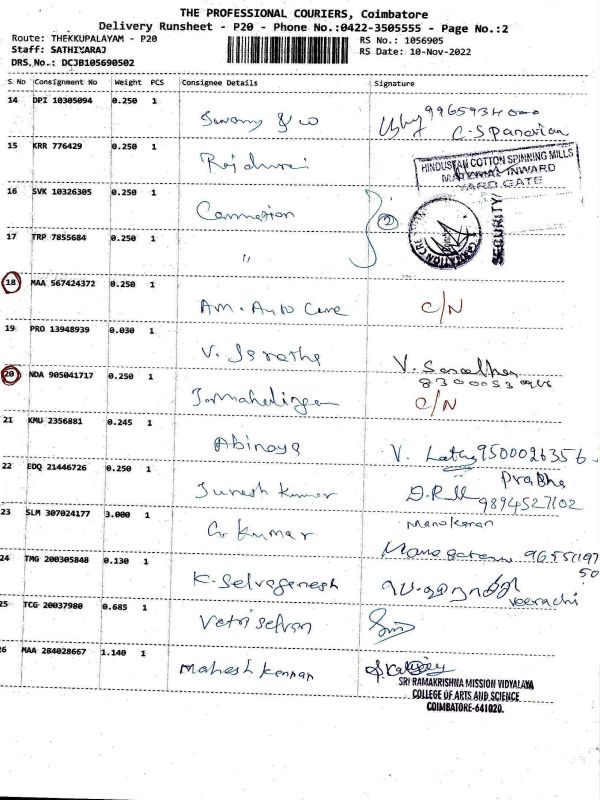 THE PROFESSIONAL COURIERS, Coimbatore
Delivery Runsheet - P20 - Phone No.:0422-3505555 - Page No.:2
Route: THEKKUPALAYAM - P20
RS No.: 1056905
Staff: SATHIYARAJ
RS Date: 10-Nov-2022
DRS,No.: DCJB105690502
S No Consignment No Weight PCS Consignee Details Signature
14 DPI 10305094 0.250 1
Swamy & co
C.S Pandian
15 KRR 776429 0.250 1
HINDUSTAN COTTON SPINNING MILLS
MATERIAL INWARD
YARD GATE
SECURITY
16 SVK 10326305 0.250 1
②
17 TRP 7855684 0.250 1
"
18 MAA 567424372 0.250 1
AM. Auto Care C/N
19 PRO 13948939 0.030 1
V.
V.
20 NDA 905041717 0.250 1
C/N
21 KMU 2356881 0.245 1
Abinaya V. Latha 9500026356
22 EDQ 21446726 0.250 1
Prabha
Suresh Kumar 9894527102
23 SLM 307024177 3.000 1
Manokaran
G. Kumar
24 TMG 200305848 0.130 1
K. Selvaganesh
Veerachi
25 TCG 20037980 0.685 1
Vetriselvan
26 MAA 284028667 1.140 1
Mahesh Kannan
SRI RAMAKRISHNA MISSION VIDYALAYA
COLLEGE OF ARTS AND SCIENCE
COIMBATORE-641020.